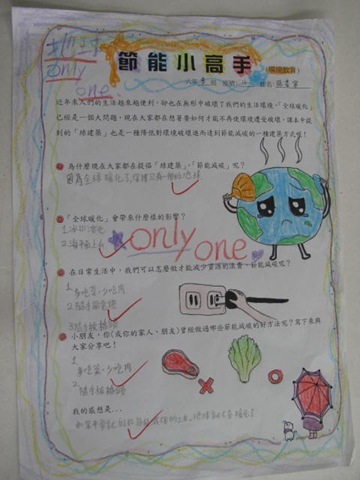 地球
only
one
節能小高手
(環境教育)
近年來人們的生活越來越便利，卻也在無形中破壞了我們的生活環境，「全球暖化」
已經是一個大問題，現在大家都在想著要如何才能不再使環境遭受破壞，課本中提
到的「綠建築」也是一種降低對環境破壞進而達到節能減碳的一種建築方式喔！
為什麼現在大家都在提倡「綠建築」、「節能減碳」呢？
因為全球暖化了，
「全球暖化」會帶來什麼樣的影響？
1.冰山溶化
2.海平面上升
only one
在日常生活中，我們可以怎麼做才能減少資源的浪費，節能減碳呢？
1.多吃菜，少吃肉
2.隨手關電燈
3.隨手拔插頭
小朋友，你(或你的家人、朋友)曾經做過哪些節能減碳的好方法呢？寫下來與
大家分享吧！
1.多吃菜，少吃肉
2.隨手拔插頭
我的感想是...